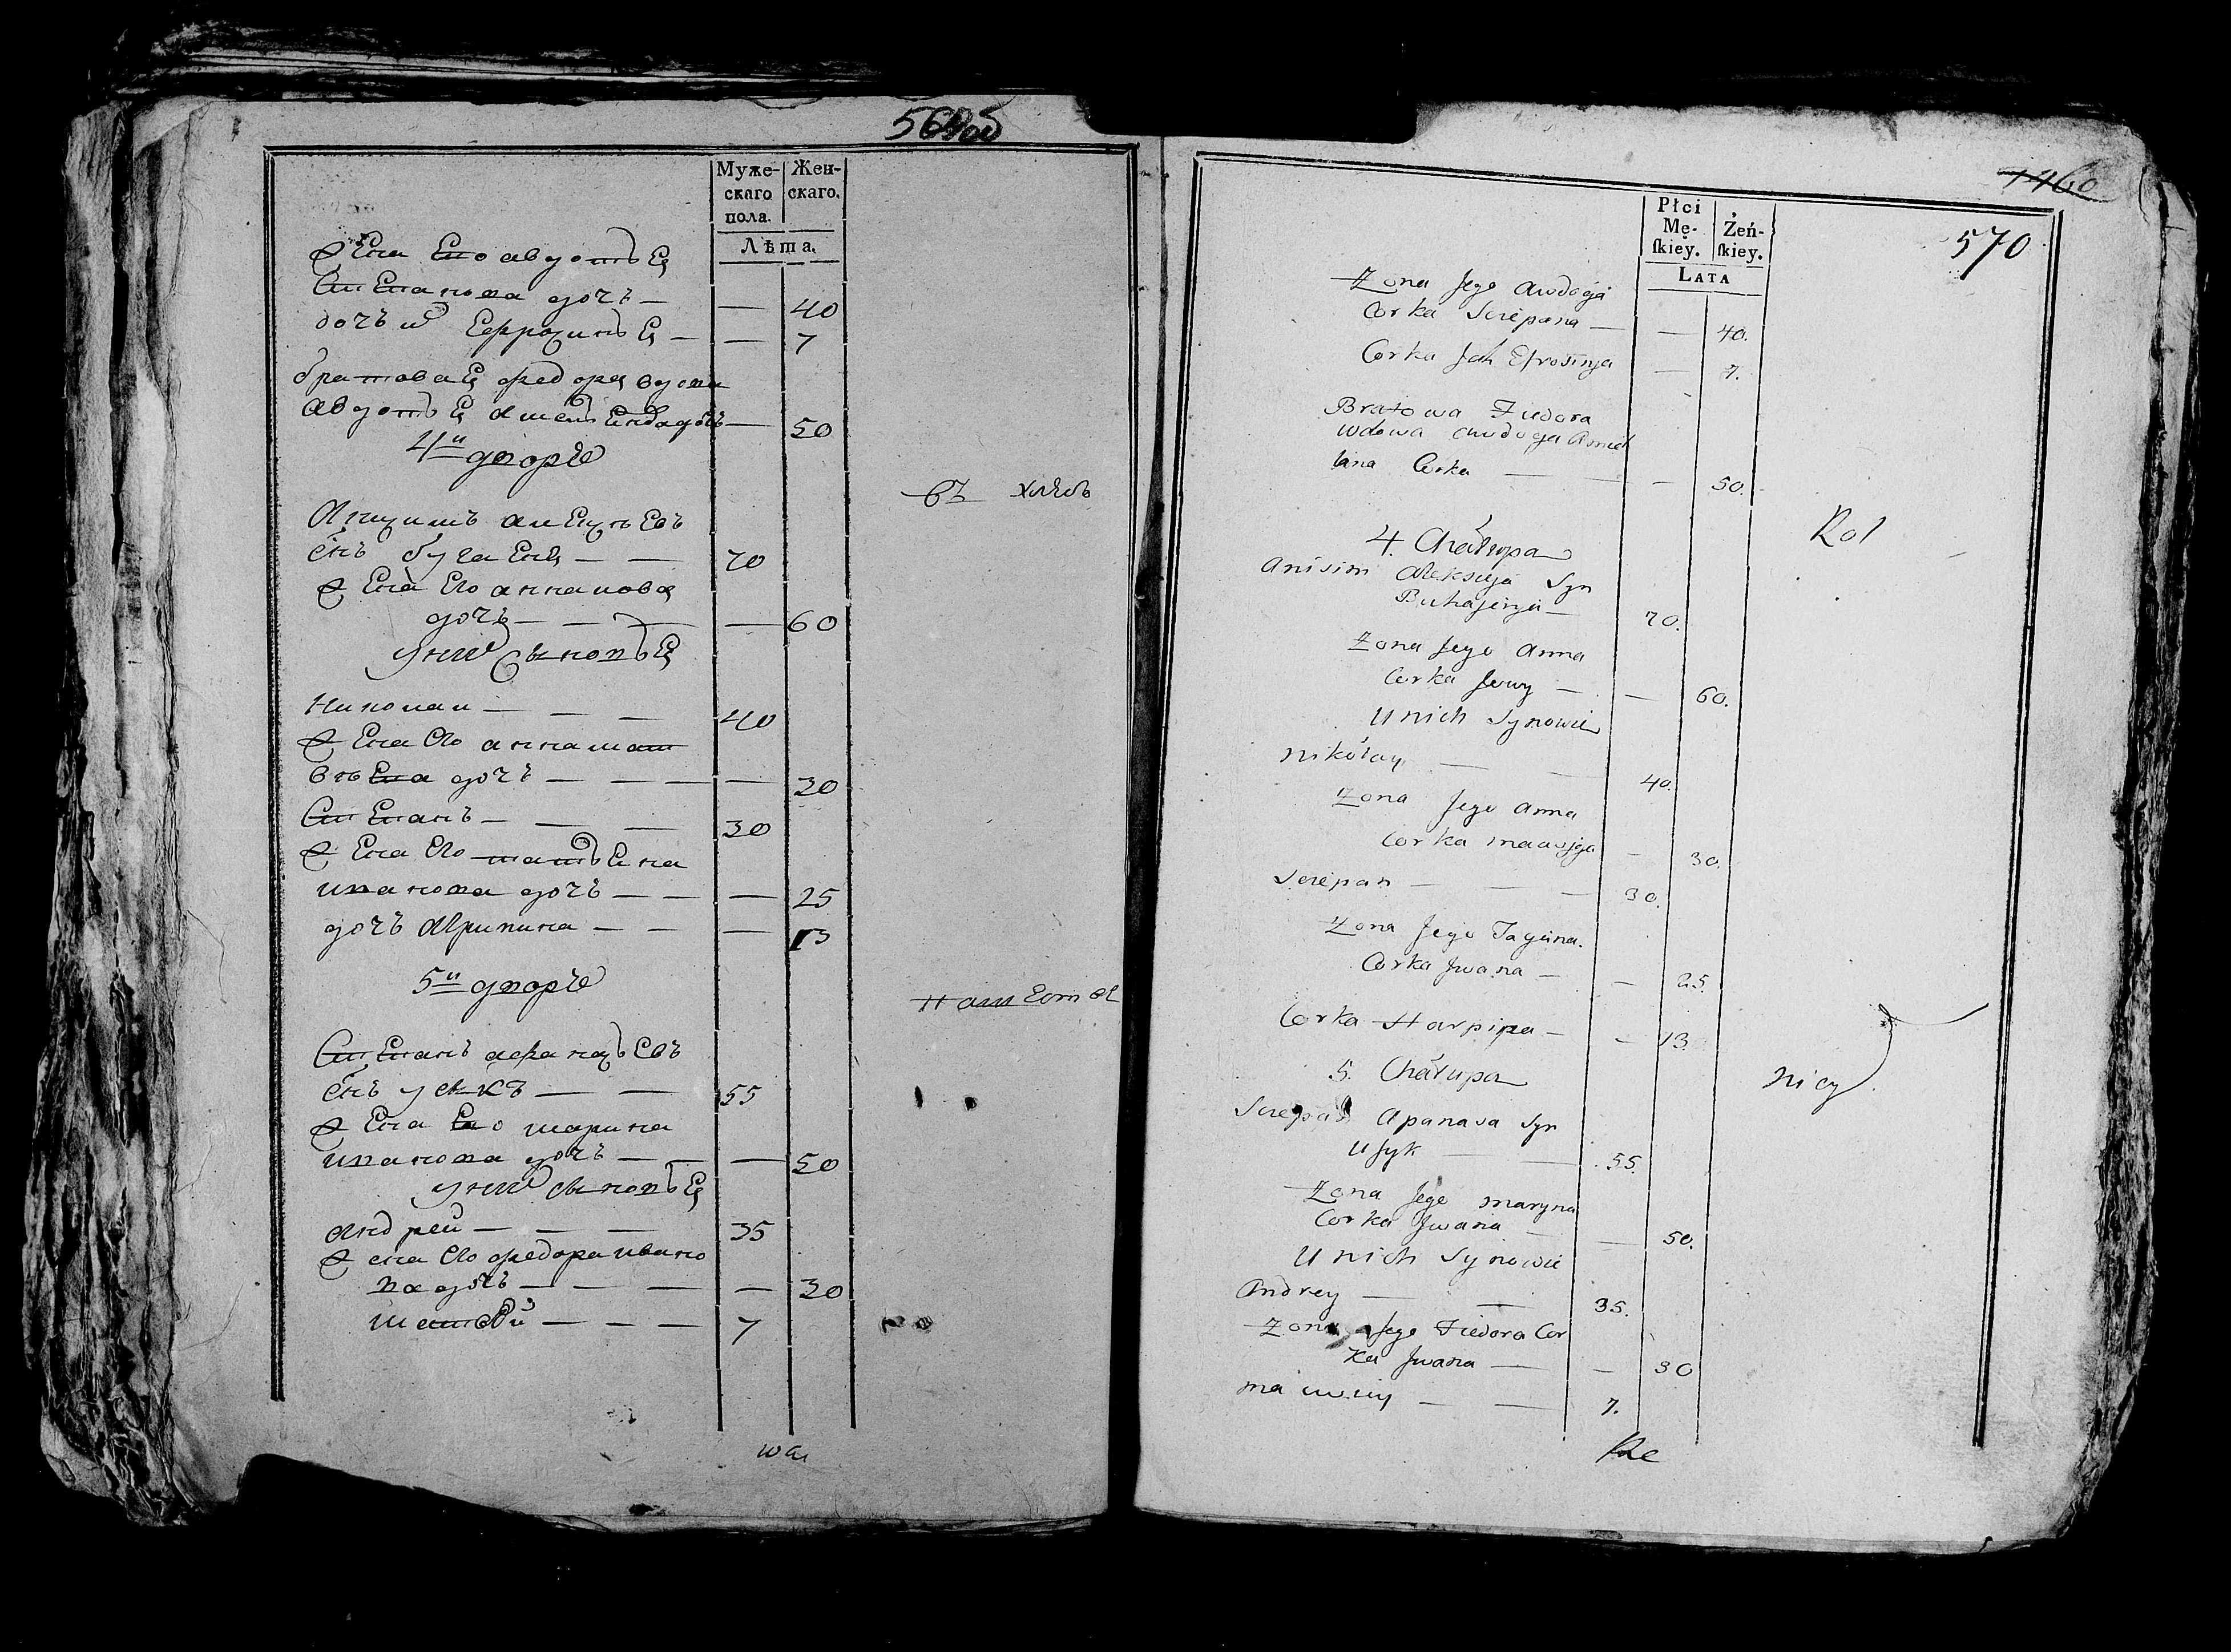 569об
Муже-
скаго
пола.
Жен-
скаго.
Лѣта.
жена его авдотья
Степанова дочъ — — 40
дочъ их Ефрозинья — — 7
братовая федора вдова
авдотья Амельянова дочъ — 50
4й дворъ
въ хлеб
Анизимъ алексѣевъ
снъ бугаеня — — 70
жена его анна иова
дочъ — — — 60
у них сыновья
Николаи — — — 40
жена его анна мат
вѣева дочъ — — — — 30
Степанъ — — — 30
жена его татьяна
иванова дочъ — — — 25
дочъ Агрипина — — — 13
5й дворъ
Степанъ афаназьевъ
снъ усыкъ — — 55
жена его марина
иванова дочъ — — — 50
у них сыновья
андреи — — — 35
жена его федора ивано
ва дочъ — — — — 30
матвѣй — — — 7
1460
570
Płci
Mę-
ſkiey.
Żeń-
ſkiey.
LATA
Zona Jego Awdoja
Corka Sciepana — — 40.
Corka Jch Efrosinja — 7.
Bratowa Fiedora
wdowa Awdoja Amel
lana Corka — — — 50.
Rol
4. Chałupa
Anisim Aleksieja Syn
Buhajenja — 70.
Zona Jego Anna
Corka Jowy — — 60.
U nich Synowie
Nikołay — — 40.
Zona Jego Anna
Corka Maawjeja — 30.
Sciepan — — — 30.
Zona Jego Taciana.
Corka Jwana — — 25.
Corka Harpina — — 13.
5. Chałupa
nicy
Sciepan Apanasa Syn
Usyk — — 55.
Zona Jego Maryna
Corka Jwana — — 50.
U nich Synowie
Andrey — — 35.
Zona Jego Fiedora Cor
ka Jwana — — 30
Maćwiey — — 7.